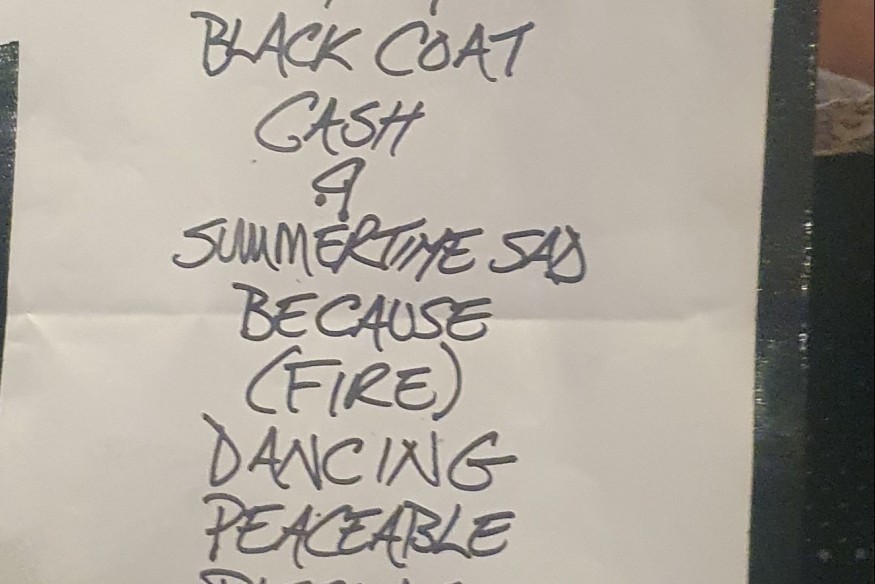 BLACK COAT
CASH
SUMMERTIME SAD
BECAUSE
(FIRE)
DANCING
PEACEABLE